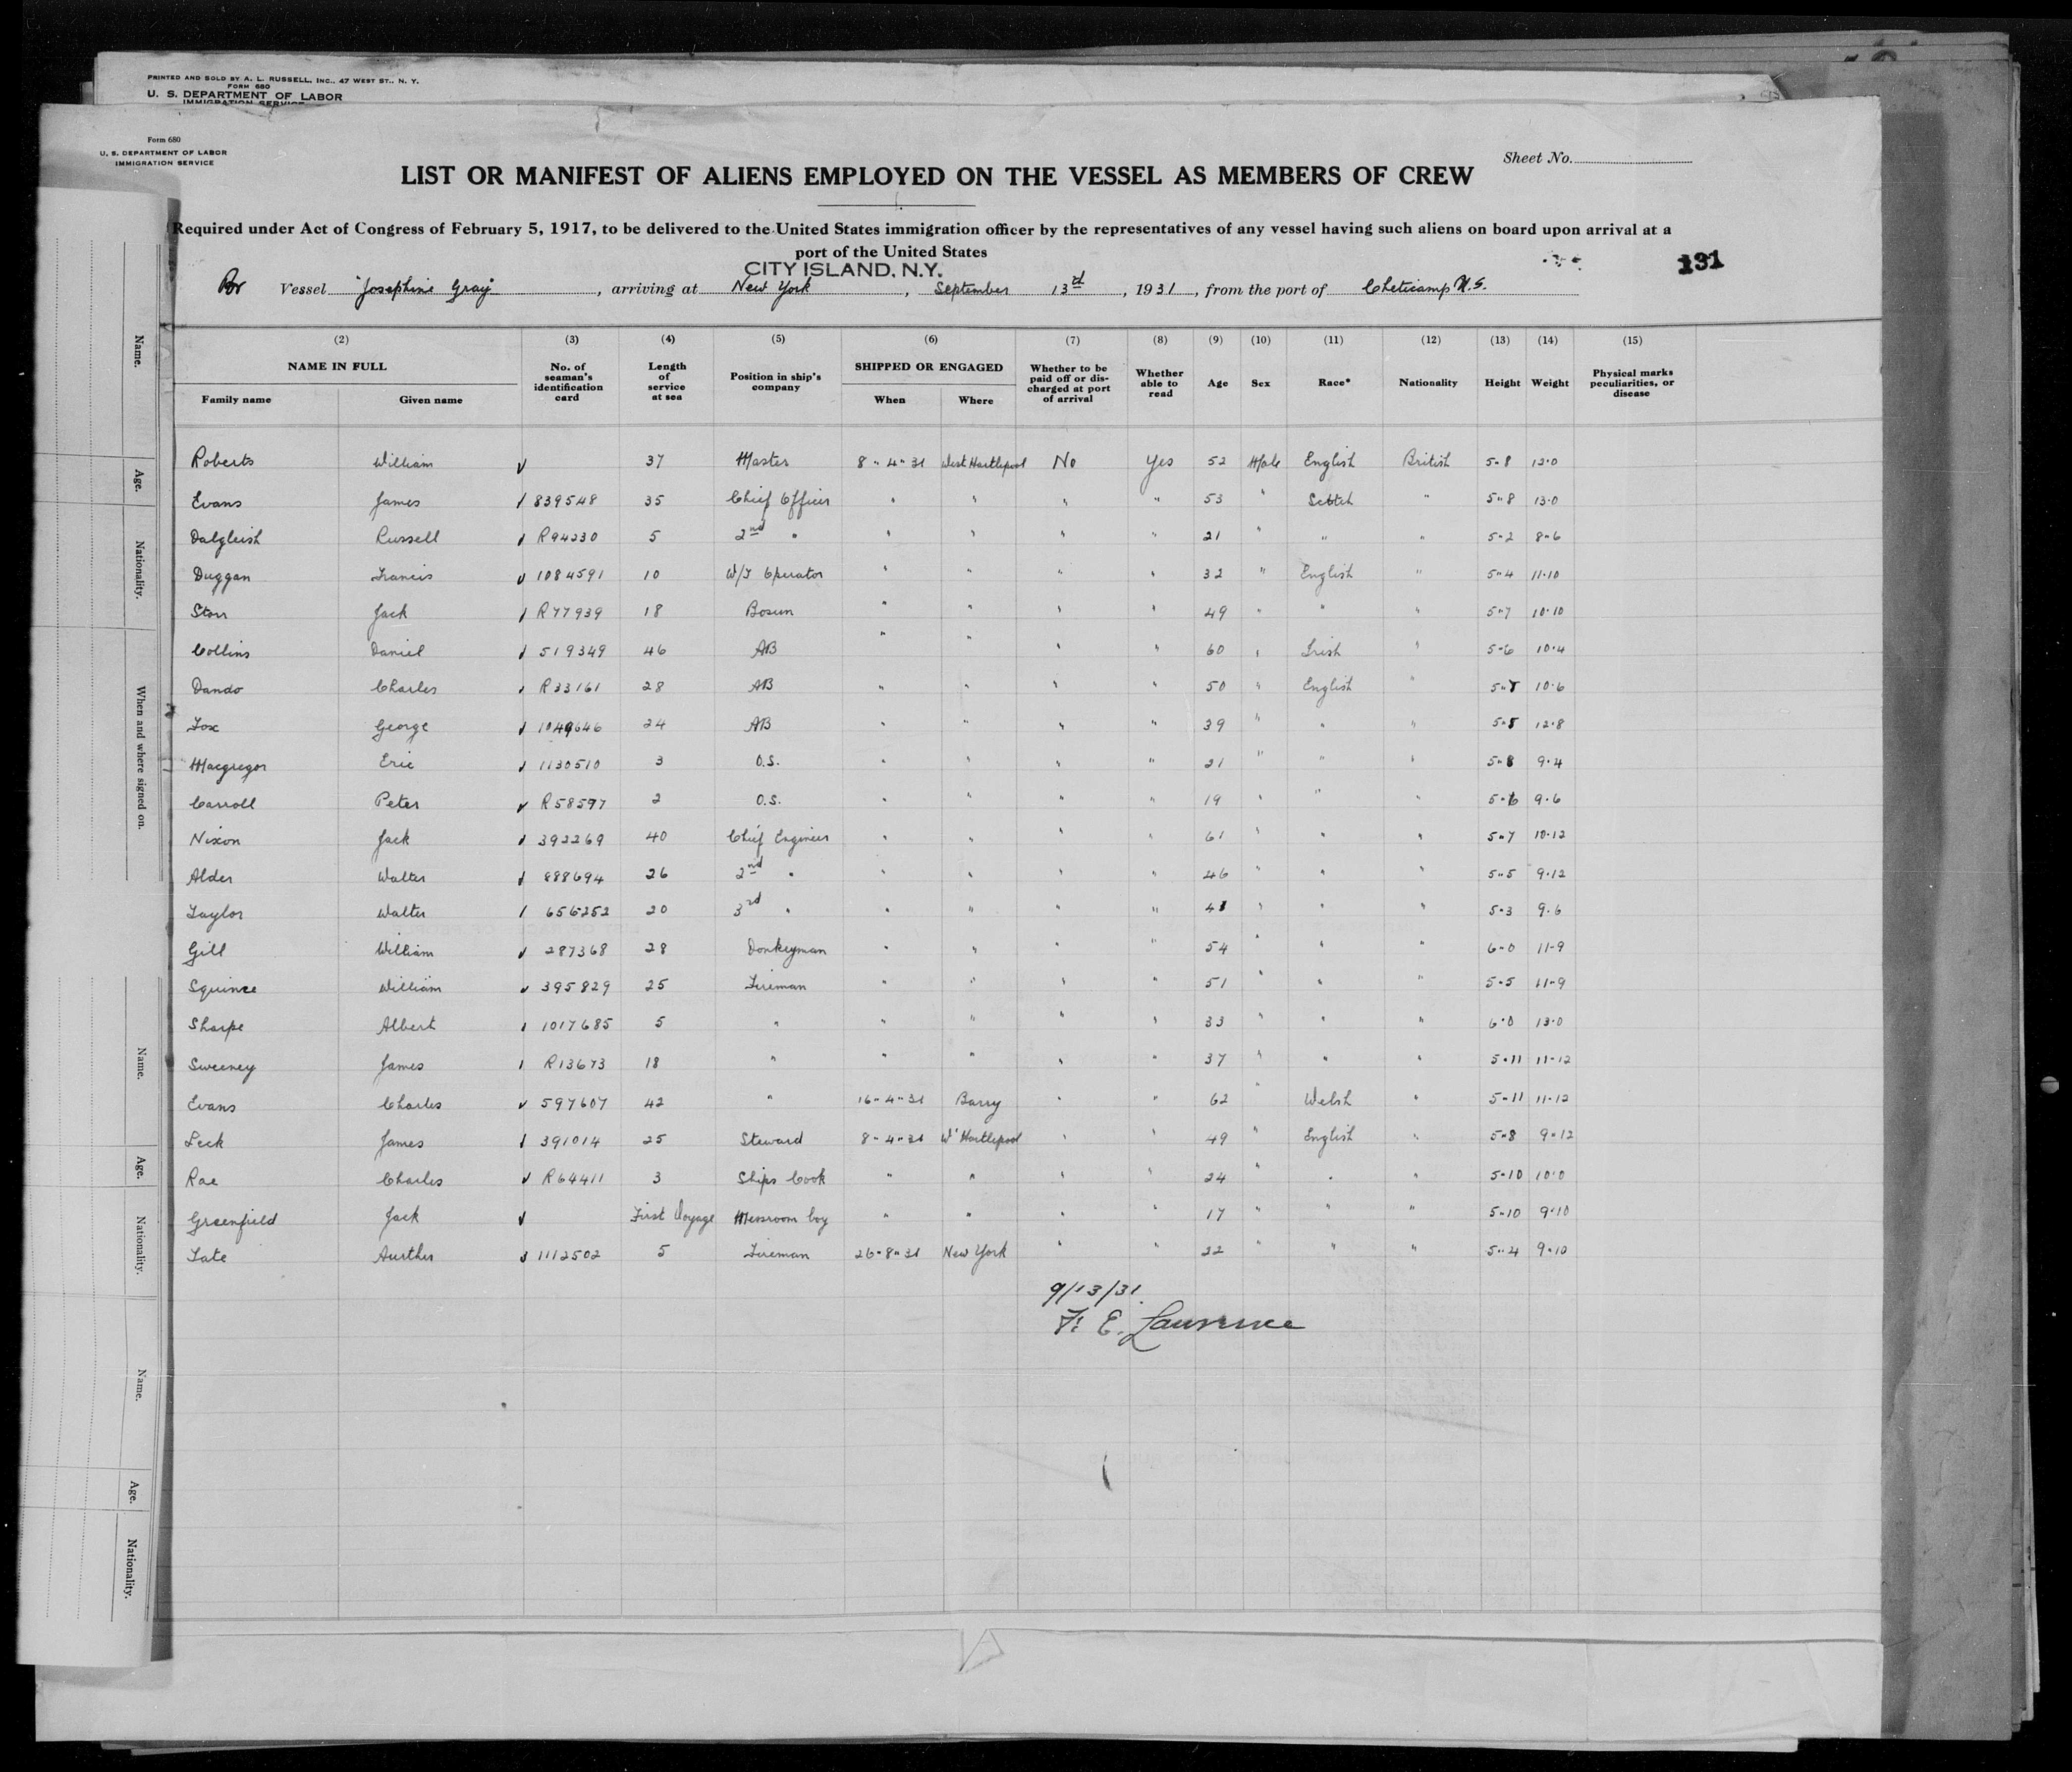 PRINTED AND SOLD BY A. L. RUSSELL, INC., 47 WEST ST., N. Y.
FORM 680
U. S. DEPARTMENT OF LABOR
IMMIGRATION SERVICE
Form 680
U. S. DEPARTMENT OF LABOR
IMMIGRATION SERVICE
Sheet No.
LIST OR MANIFEST OF ALIENS EMPLOYED ON THE VESSEL AS MEMBERS OF CREW
Required under Act of Congress of February 5, 1917, to be delivered to the United States immigration officer by the representatives of any vessel having such aliens on board upon arrival at a
port of the United States
CITY ISLAND, N.Y.
131
Br Vessel "Josephine Gray", arriving at New York, September 13rd, 1931, from the port of Cheticamp N.S.
(2) (3) (4) (5) (6) (7) (8) (9) (10) (11) (12) (13) (14) (15)
NAME IN FULL No. of seaman's identification card Length of service at sea Position in ship's company SHIPPED OR ENGAGED Whether to be paid off or discharged at port of arrival Whether able to read Age Sex Race* Nationality Height Weight Physical marks peculiarities, or disease
Family name Given name When Where
Roberts William √ 37 Master 8"4"31 West Hartlepool No Yes 52 Male English British 5-8 12-0
Evans James √ 839548 35 Chief Officer " " " " 53 " Scotch " 5"8 13-0
Dalgleish Russell √ R94230 5 2nd " " " " " 21 " " " 5-2 8-6
Duggan Francis √ 1084591 10 W/T Operator " " " " 32 " English " 5"4 11-10
Storr Jack √ R77939 18 Bosun " " " " 49 " " " 5"7 10-10
Collins Daniel √ 519349 46 AB " " " " 60 " Irish " 5-6 10-4
Dando Charles √ R33161 28 AB " " " " 50 " English " 10-6
Fox George √ 1049646 24 AB " " " " 39 " " " 5-5 12-8
Macgregor Eric √ 1130510 3 O.S. " " " " 21 " " " 5-8 9-4
Carroll Peter √ R58597 2 O.S. " " " " 19 " " " 5-6 9-6
Nixon Jack √ 392269 40 Chief Engineer " " " " 61 " " " 5-7 10-12
Alder Walter √ 888694 26 2nd " " " " " 46 " " " 5"5 9-12
Taylor Walter √ 656252 20 3rd " " " " " " " " 5-3 9-6
Gill William √ 287368 28 Donkeyman " " " " 54 " " " 6-0 11-9
Squince William √ 395829 25 Fireman " " " " 51 " " " 5-5 11-9
Sharpe Albert √ 1017685 5 " " " " " 33 " " " 6-0 13-0
Sweeney James √ R13673 18 " " " " " 37 " " " 5-11 11-12
Evans Charles √ 597607 42 " 16"4"31 Barry " " 62 " Welsh " 5-11 11-12
Leck James √ 391014 25 Steward 8"4"31 W' Hartlepool " " 49 " English " 5-8 9-12
Rae Charles √ R64411 3 Ships Cook " " " " 24 " " " 5-10 10-0
Greenfield Jack √ First Voyage Messroom boy " " " " 17 " " " 5-10 9-10
Tate Aurther √ 1112502 5 Fireman 26-8-31 New York " " 22 " " " 5"4 9-10
9/13/31.
F. E. Lawrence
Name.
Age.
Nationality.
When and where signed on.
Name.
Age.
Nationality.
Name.
Age.
Nationality.